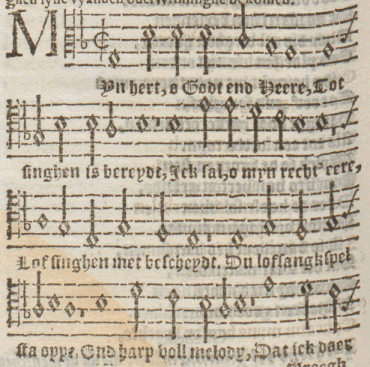 ghen syne vyanden overwinninghe bekomen.
M
Yn hert, o Godt end Heere, Tot
singhen is bereydt, Jck sal, o myn recht' eere,
Lof singhen met bescheydt. Du lofsangk spel
sta oppe, End harp voll melody, Dat ick daer